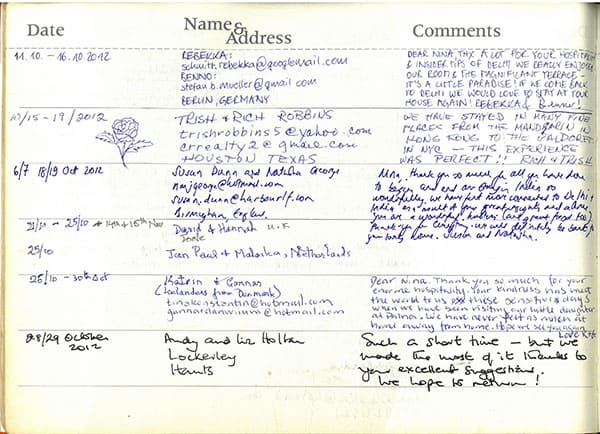 Date Name & Address Comments
11.10. - 16.10.2012
REBEKKA:
schmitt.rebekka@googlemail.com
BENNO:
stefan.b.mueller@gmail.com
BERLIN, GERMANY
DEAR NINA, THX A LOT FOR YOUR HOSPITALITY
& INSIDER TIPS OF DELHI! WE REALLY ENJOYED
OUR ROOM & THE MAGNIFICANT TERRACE -
IT'S A LITTLE PARADISE! IF WE COME BACK
TO DELHI WE WOULD LOVE TO STAY AT YOUR
HOUSE AGAIN! REBEKKA & Benno!
10/15 - 19/2012
TRISH & RICH ROBBINS
trishrobbins5@yahoo.com
crrealty2@gmail.com
HOUSTON TEXAS
WE HAVE STAYED IN MANY FINE
PLACES FROM THE MANDARIN IN
HONG KONG TO THE WALDORF
IN NYC - THIS EXPERIENCE
WAS PERFECT!! RICH & TRISH
6/7 18/19 Oct 2012
Susan Dunn and Natasha George
nmjgeorge@hotmail.com
susan.dunn@harbourlf.com
Birmingham, England.
Nina, thank you so much for all you have done
to begin and end our time in India so
wonderfully, we have felt more connected to Delhi &
India as a result of your generosity and advice
you are a wonderful hostess (and great food too)
thank you for everything. We will definitely be back to
your lovely home. Susan and Natasha.
21/10 - 25/10 + 14th & 15th Nov
David & Hannah U.K
25/10
Jan Paul & Malaika, Netherlands
25/10 - 30th Oct
Katrin & Gunnar
(Icelanders from Denmark)
tinakonstantin@hotmail.com
Dear Nina. Thank you so much for your
enorme hospitality. Your kindness has meet
the world to us these sensitive days
when we have been visiting our little daughter
We have never felt as much at
home away from home. Hope we see you again
Love
28/29 October
2012
Andy and Liz Holton
Lockerley
Hants
Such a short time - but we
made the most of it thanks to
your excellent suggestions.
We hope to return!